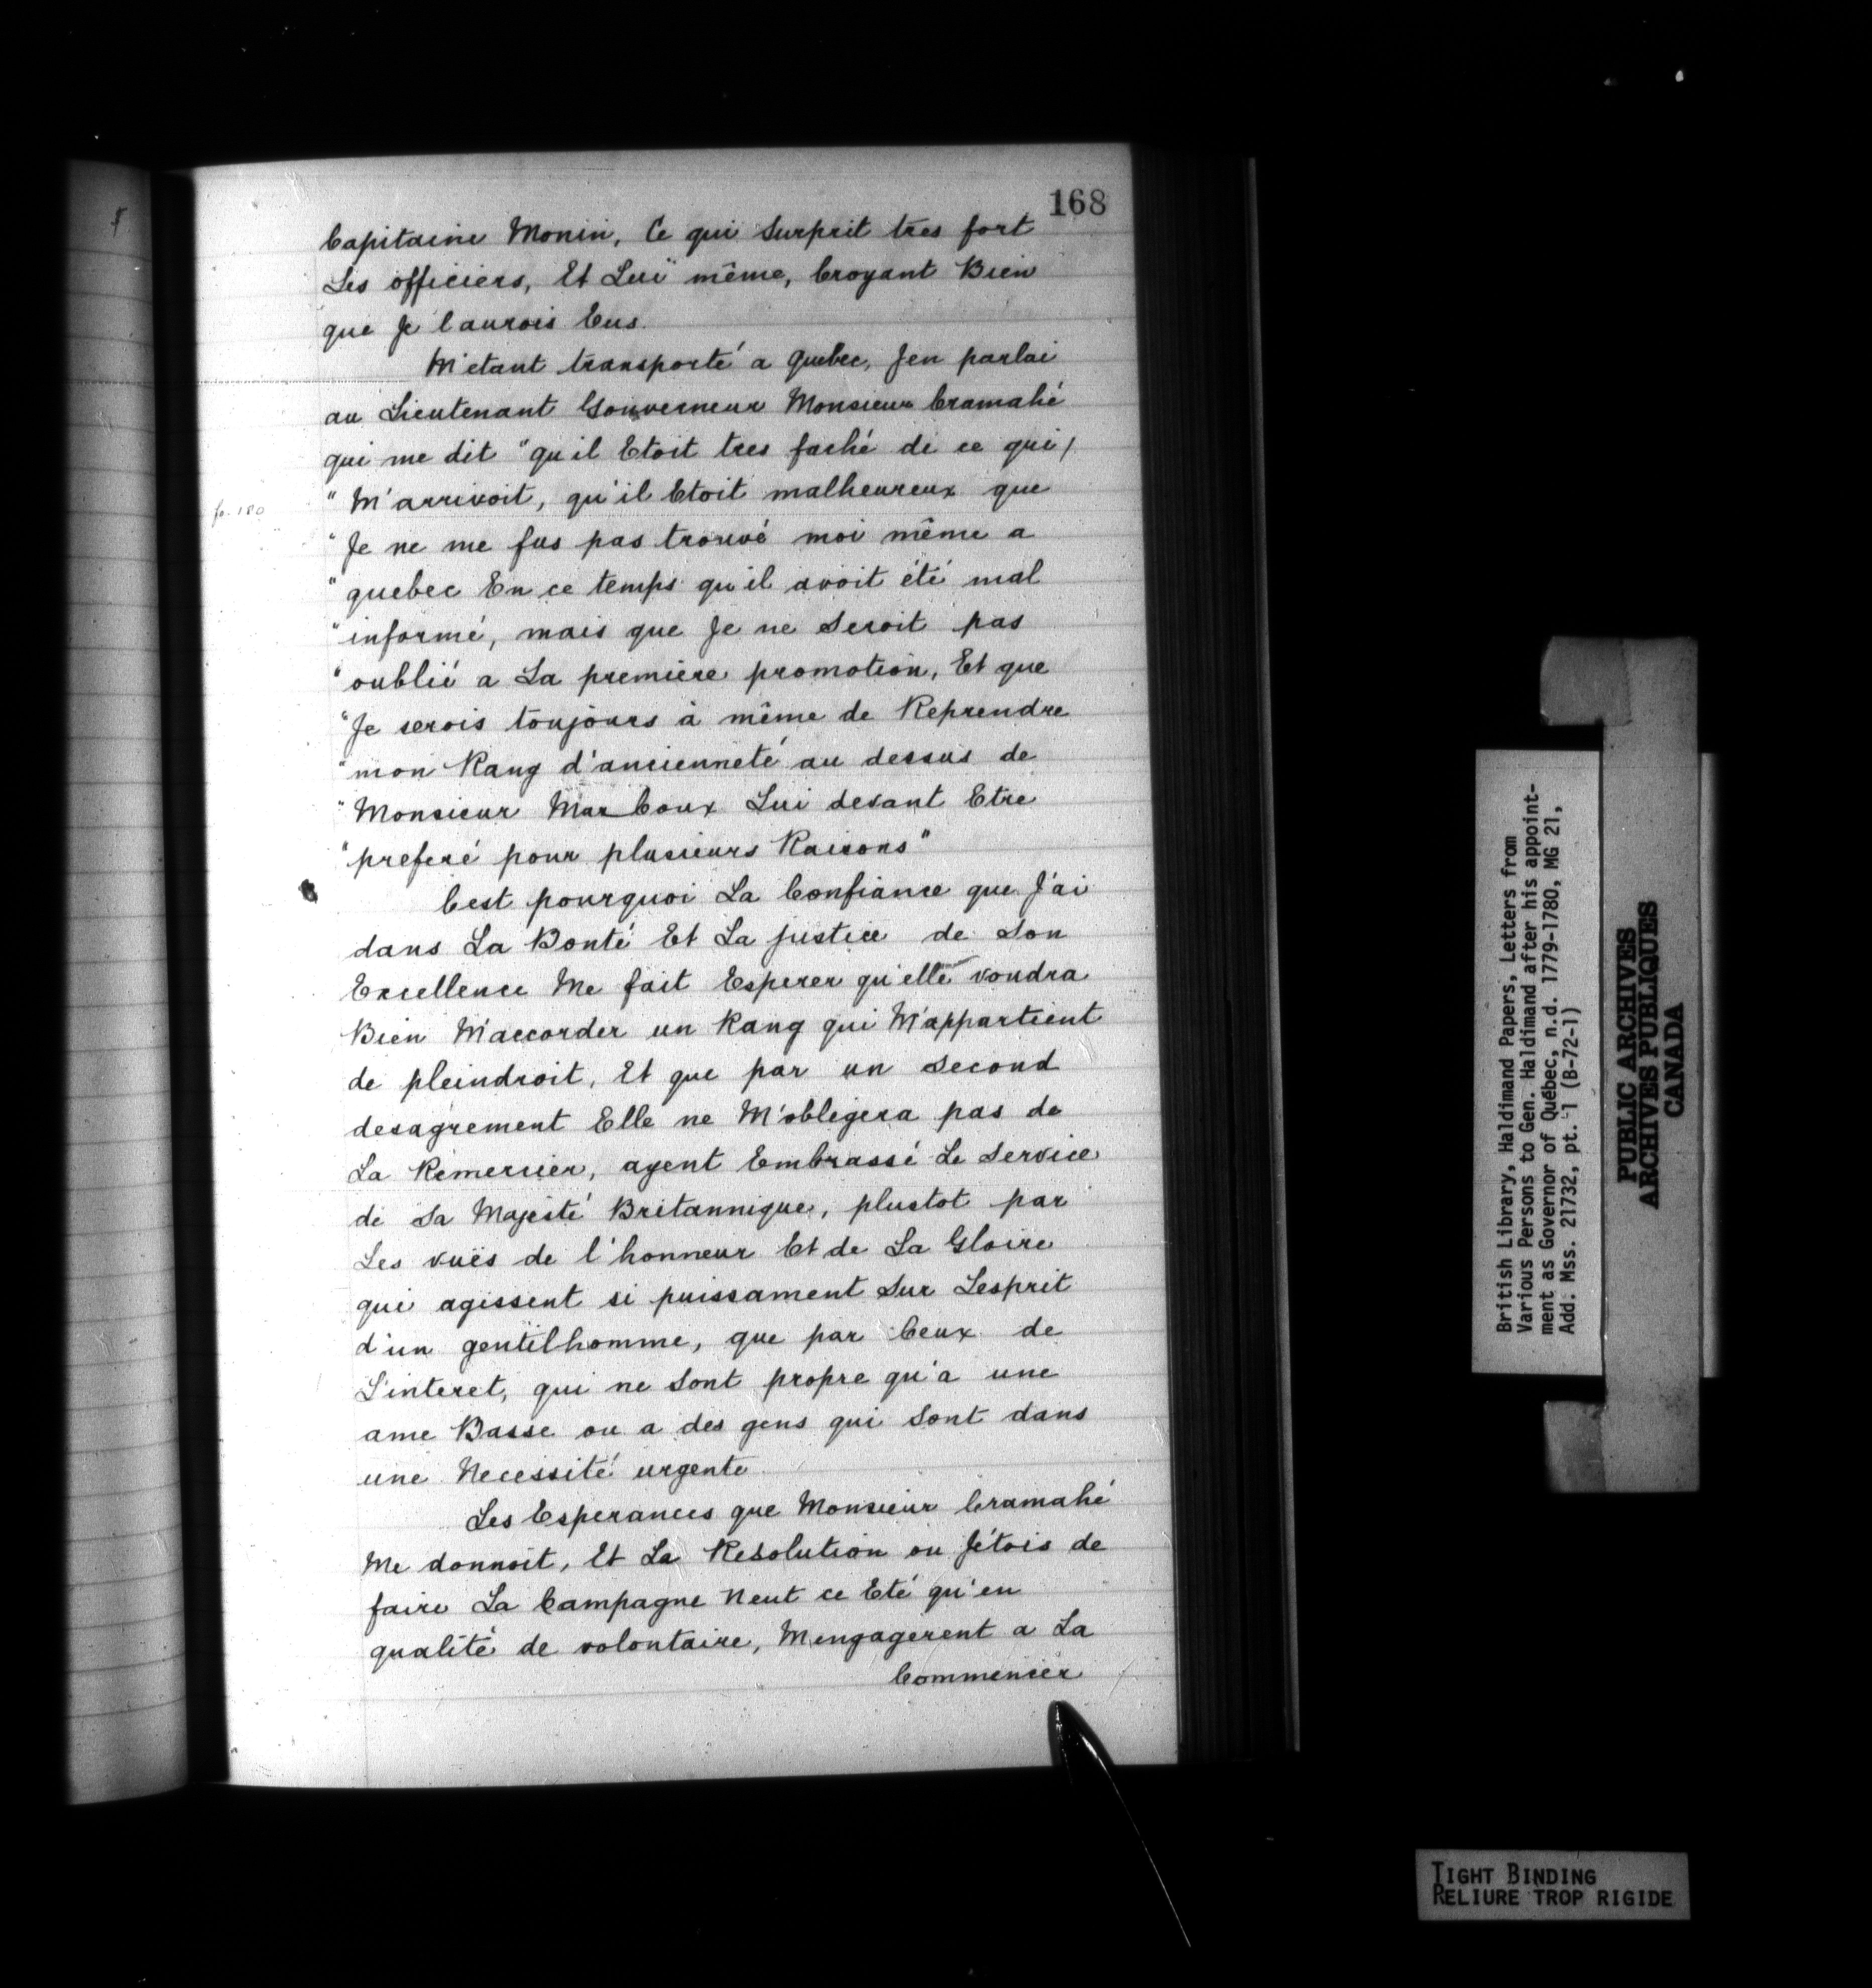 168
Capitaine Monin, Ce qui Surprit tres fort
Les officiers, Et Lui même, Croyant Bien
que Je l'aurois Eus.
M'etant transporté a quebec, J'en parlai
au Lieutenant Gouverneur Monsieur Cramahé
qui me dit "qu'il Etoit tres faché de ce qui/
"M'arrivoit, qu'il Etoit malheureux que
fo. 180
"Je ne me fus pas trouvé moi même a
"quebec En ce temps qu'il avoit été mal
"informé, mais que Je ne Seroit pas
"oublié a La premiere promotion, Et que
"Je serois toujours à même de Reprendre
"mon Rang d'ancienneté au dessus de
"Monsieur Mar Coux Lui devant Etre
"preferé pour plusieurs Raisons"
C'est pourquoi La Confiance que J'ai
dans La Bonté Et La justice de Son
Excellence Me fait Esperer qu'elle voudra
Bien M'accorder un Rang qui M'appartient
de pleindroit, Et que par un Second
desagrement Elle ne M'obligera pas de
La Remercier, ayent Embrassé Le Service
de Sa Majesté Britannique, plustot par
Les vuës de l'honneur Et de La Gloire
qui agissent si puissament Sur Lesprit
d'un gentilhomme, que par Ceux de
L'interet, qui ne Sont propre qu'a une
ame Basse ou a des gens qui Sont dans
une Necessité urgente
Les Esperances que Monsieur Cramahé
Me donnoit, Et La Resolution ou J'étois de
faire La Campagne Neut ce Eté qu'en
qualité de volontaire, M'engagerent a La
Commencer
British Library, Haldimand Papers, Letters from
Various Persons to Gen. Haldimand after his appoint-
ment as Governor of Québec, n.d. 1779-1780, MG 21,
Add: Mss. 21732, pt. 1 (B-72-1)
PUBLIC ARCHIVES
ARCHIVES PUBLIQUES
CANADA
TIGHT BINDING
RELIURE TROP RIGIDE